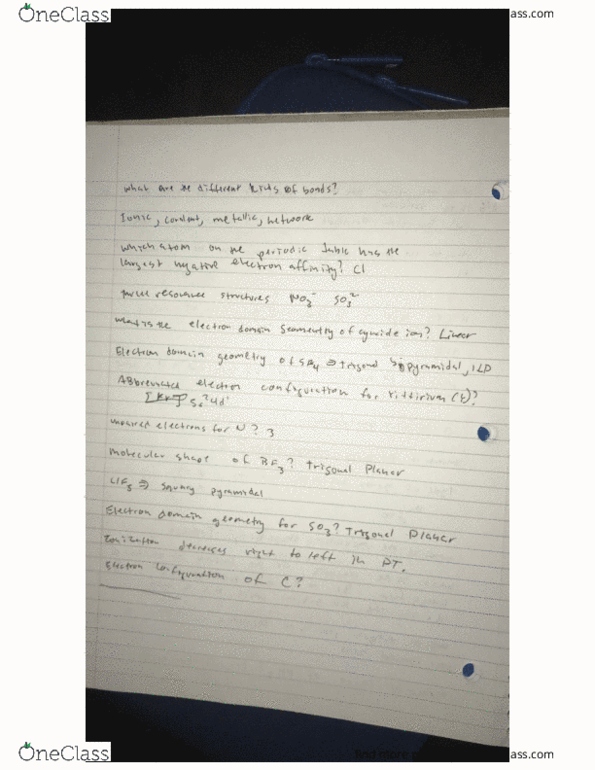 OneClass
lass.com
what are the different kinds of bonds?
Ionic, covalent, metallic, network
which atom on the periodic table has the
largest negative electron affinity? Cl
resonance structures NO₂⁻ SO₃²⁻
what is the electron domain geometry of cyanide ion? Linear
Electron domain geometry of SF₄ ⇒ trigonal bipyramidal, 1LP
Abbreviated electron configuration for Yittirium (Y)?
[Kr] 5s²4d¹
unpaired electrons for N? 3
molecular shape of BF₃? Trigonal Planar
⇒ square pyramidal
Electron domain geometry for SO₃? Trigonal Planar
Ionization decreases right to left in PT.
Electron configuration of C?
OneClass
find more
lass.com